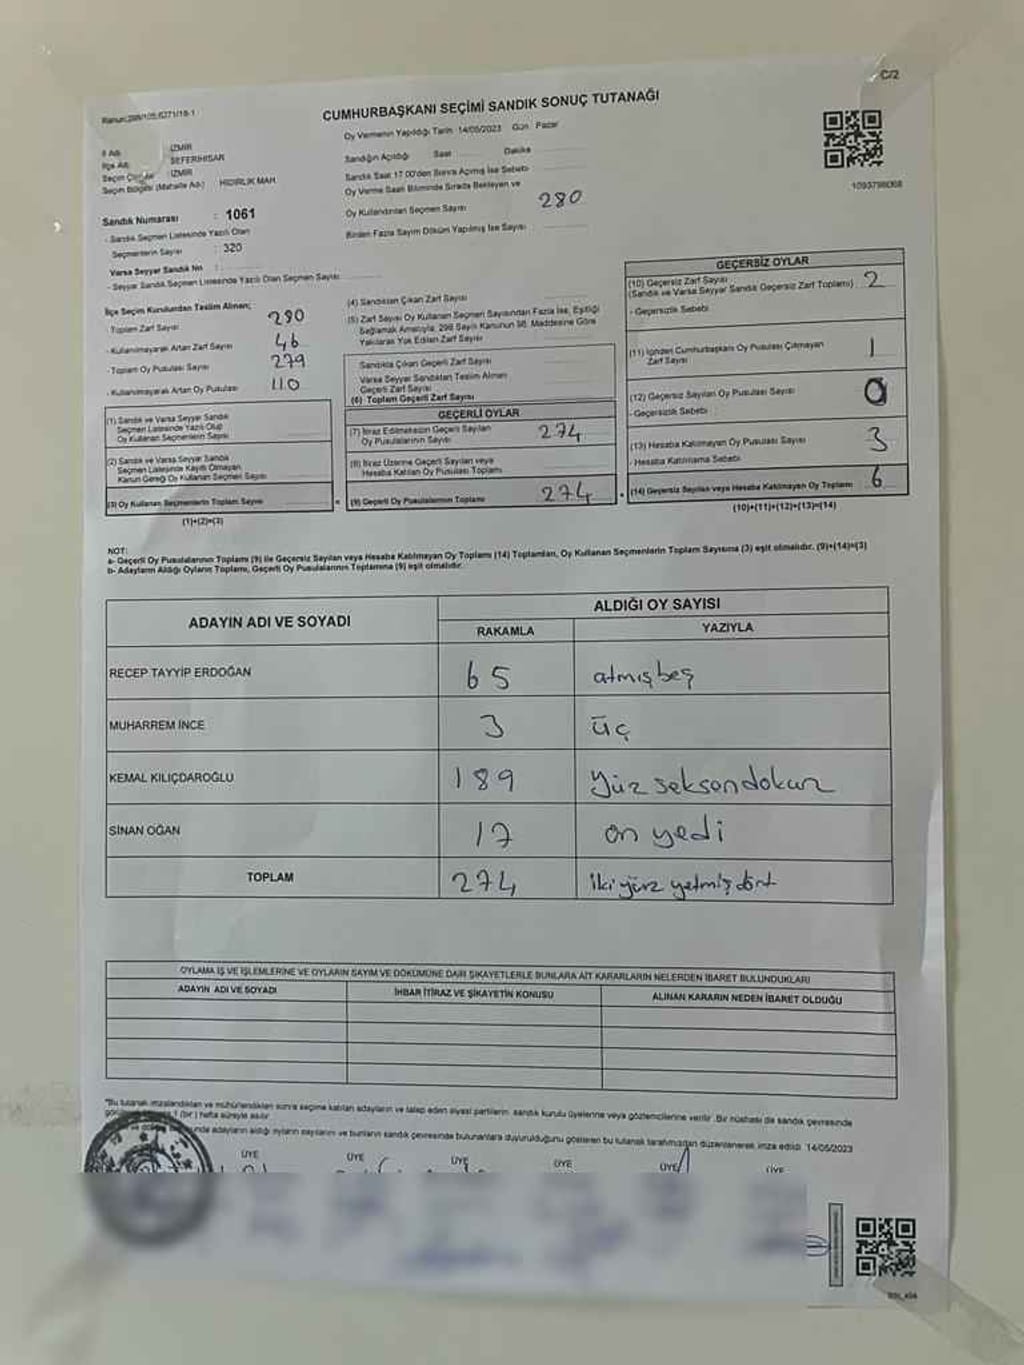 C/2
CUMHURBAŞKANI SEÇİMİ SANDIK SONUÇ TUTANAĞI
Oy Vermenin Yapıldığı Tarih 14/05/2023 Gün Pazar
İl Adı İZMİR
İlçe Adı SEFERİHİSAR
Seçim İZMİR
Seçim Bölgesi (Mahalle Adı) HIDIRLIK MAH.
Sandık Numarası : 1061
- Sandık Seçmen Listesinde Yazılı Olan
Seçmenlerin Sayısı : 320
Varsa Seyyar Sandık No :
- Seyyar Sandık Seçmen Listesinde Yazılı Olan Seçmen Sayısı
Sandığın Açıldığı Saat Dakika
Sandık Saat 17.00'den Sonra Açılmış İse Sebebi
Oy Verme Saati Bitiminde Sırada Bekleyen ve
Oy Kullandırılan Seçmen Sayısı 280
Birden Fazla Sayım Döküm Yapılmış İse Sayısı
1093798068
İlçe Seçim Kurulundan Teslim Alınan;
- Toplam Zarf Sayısı
- Kullanılmayarak Artan Zarf Sayısı 46
- Toplam Oy Pusulası Sayısı 279
- Kullanılmayarak Artan Oy Pusulası 110
(1) Sandık ve Varsa Seyyar Sandık
Seçmen Listesinde Yazılı Olup
Oy Kullanan Seçmenlerin Sayısı
(2) Sandık ve Varsa Seyyar Sandık
Seçmen Listesinde Kayıtlı Olmayan
Kanun Gereği Oy Kullanan Seçmen Sayısı
(3) Oy Kullanan Seçmenlerin Toplam Sayısı
(1)+(2)=(3)
(4) Sandıktan Çıkan Zarf Sayısı
(5) Zarf Sayısı Oy Kullanan Seçmen Sayısından Fazla İse, Eşitliği
Sağlamak Amacıyla, 298 Sayılı Kanunun 98. Maddesine Göre
Yakılarak Yok Edilen Zarf Sayısı
Sandıkta Çıkan Geçerli Zarf Sayısı
Varsa Seyyar Sandıktan Teslim Alınan
Geçerli Zarf Sayısı
(6) Toplam Geçerli Zarf Sayısı
GEÇERLİ OYLAR
(7) İtiraz Edilmeksizin Geçerli Sayılan
Oy Pusulalarının Sayısı 274
(8) İtiraz Üzerine Geçerli Sayılan veya
Hesaba Katılan Oy Pusulası Toplamı
(9) Geçerli Oy Pusulalarının Toplamı 274
GEÇERSİZ OYLAR
(10) Geçersiz Zarf Sayısı
(Sandık ve Varsa Seyyar Sandık Geçersiz Zarf Toplamı) 2
- Geçersizlik Sebebi
(11) İçinden Cumhurbaşkanı Oy Pusulası Çıkmayan
Zarf Sayısı 1
(12) Geçersiz Sayılan Oy Pusulası Sayısı 0
- Geçersizlik Sebebi
(13) Hesaba Katılmayan Oy Pusulası Sayısı 3
- Hesaba Katılmama Sebebi
(14) Geçersiz Sayılan veya Hesaba Katılmayan Oy Toplamı 6
(10)+(11)+(12)+(13)=(14)
NOT:
a- Geçerli Oy Pusulalarının Toplamı (9) ile Geçersiz Sayılan veya Hesaba Katılmayan Oy Toplamı (14) Toplamları, Oy Kullanan Seçmenlerin Toplam Sayısına (3) eşit olmalıdır. (9)+(14)=(3)
b- Adayların Aldığı Oyların Toplamı, Geçerli Oy Pusulalarının Toplamına (9) eşit olmalıdır.
ADAYIN ADI VE SOYADI ALDIĞI OY SAYISI
RAKAMLA YAZIYLA
RECEP TAYYİP ERDOĞAN 65 atmışbeş
MUHARREM İNCE 3 üç
KEMAL KILIÇDAROĞLU 189 yüz seksendokuz
SİNAN OĞAN 17 on yedi
TOPLAM 274 ikiyüz yetmiş dört
OYLAMA İŞ VE İŞLEMLERİNE VE OYLARIN SAYIM VE DÖKÜMÜNE DAİR ŞİKAYETLERLE BUNLARA AİT KARARLARIN NELERDEN İBARET BULUNDUKLARI
ADAYIN ADI VE SOYADI İHBAR İTİRAZ VE ŞİKAYETİN KONUSU ALINAN KARARIN NEDEN İBARET OLDUĞU
"Bu tutanak imzalandıktan ve mühürlendikten sonra seçime katılan adayların ve talep eden siyasi partilerin, sandık kurulu üyelerine veya gözlemcilerine verilir. Bir nüshası da sandık çevresinde
1 (bir) hafta süreyle asılır.
adayların aldığı oyların sayılarını ve bunların sandık çevresinde bulunanlara duyurulduğunu gösteren bu tutanak tarafımızdan düzenlenerek imza edildi. 14/05/2023
ÜYE ÜYE ÜYE ÜYE ÜYE ÜYE